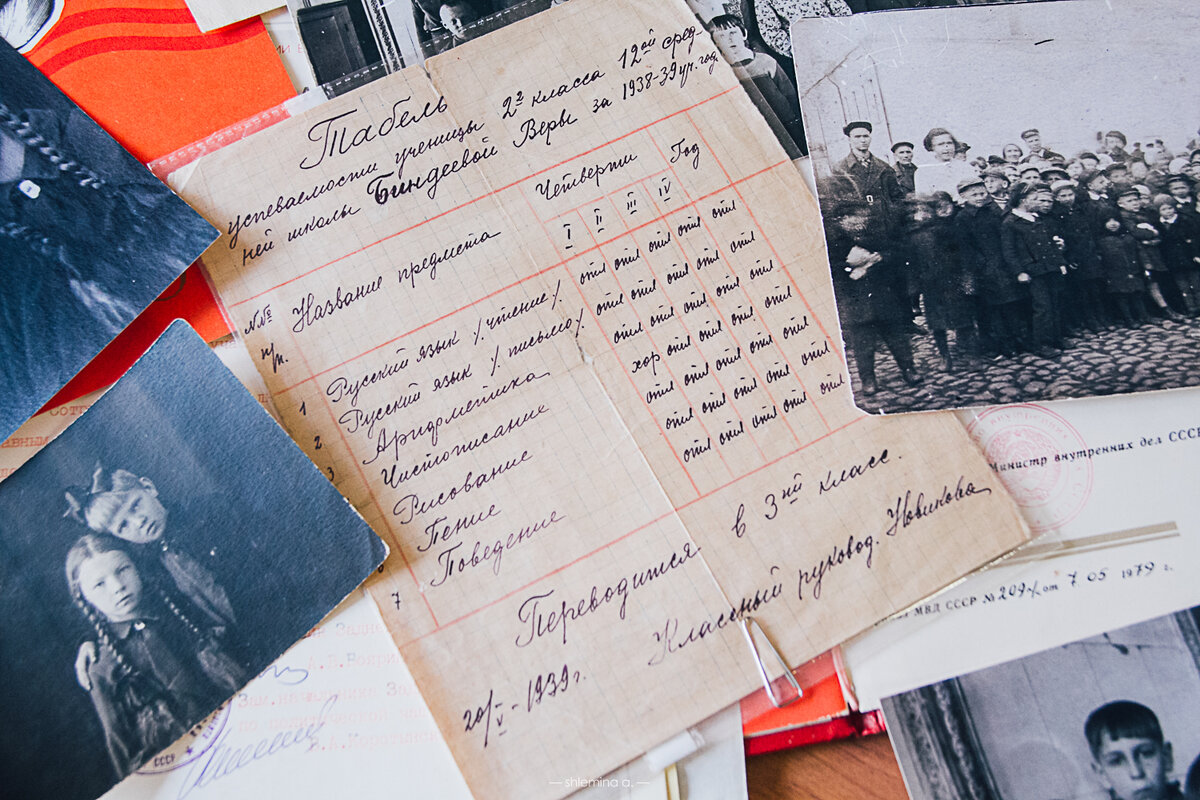 Табель
успеваемости ученицы 2г класса 12ой сред-
ней школы Биндеевой Веры за 1938-39 уч. год.
№№ п/п. Название предмета Четверти Год
I II III IV
1 Русский язык /чтение/ отл отл отл отл отл
2 Русский язык /письмо/ отл отл отл отл отл
3 Арифметика отл отл отл отл отл
Чистописание хор отл отл отл отл
Рисование отл отл отл отл отл
Пение отл отл отл отл отл
7 Поведение отл отл отл отл отл
Переводится в 3ий класс.
20/V-1939 г. Классный руковод. Новикова
Министр внутренних дел СССР
МВД СССР № 209 от 7 05 1979 г.
Зам. начальника
СССР
— shlemina a. —